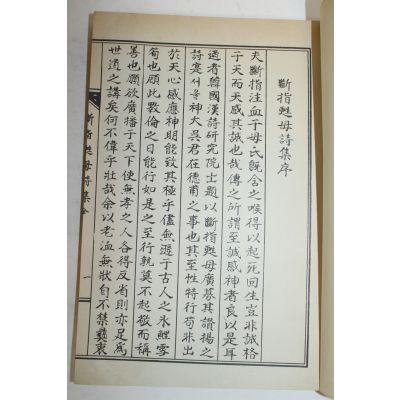 斷指甦母詩集序
夫斷指注血于母氏旣含之喉得以起死回生豈非誠格
于天而天感其誠也哉傳之所謂至誠感神者良以是耳
適者韓國漢詩硏究院士題以斷指甦母廣募其讚揚之
詩寔서울神大吳君在德甫之事也其至性特行苟非出
於天心感應神明能致其極乎儘無遜于古人之氷鯉雪
筍也頋此斁倫之日能行如是之至行孰莫不起敬而稱
善也願欲廣播于天下使無孝之人各得反省則亦足爲
世道之講矣何不偉乎壯哉余以老洫無狀自不禁彛衷
斷指甦母詩集全
一